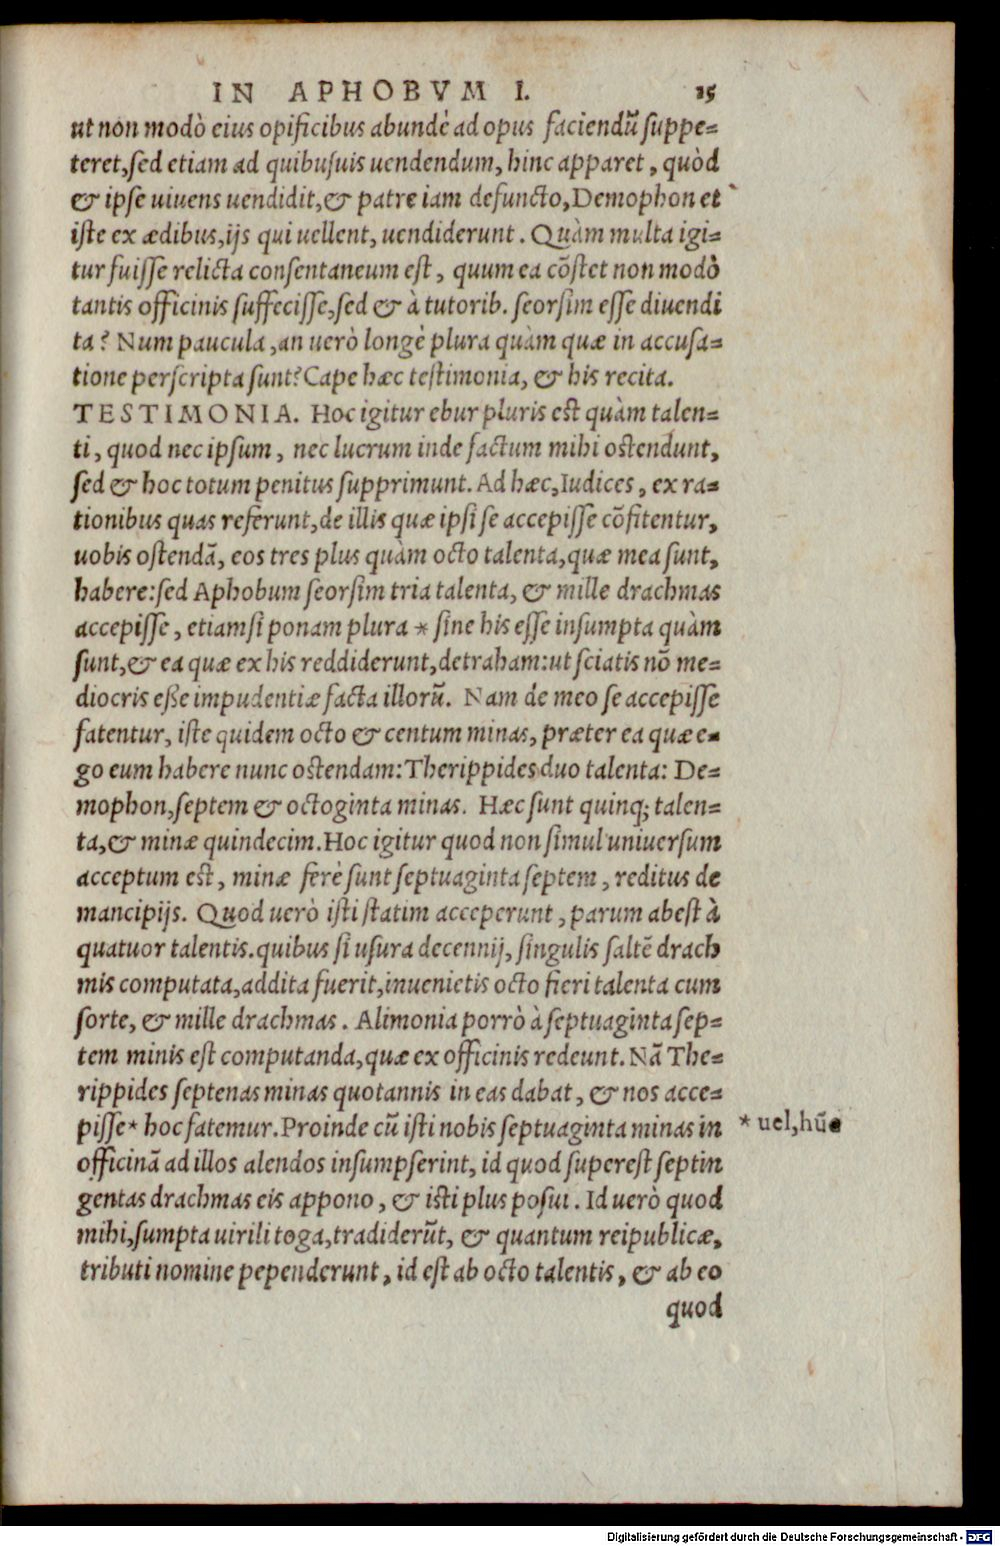 IN APHOBVM I. 15
ut non modò eius opificibus abundè ad opus faciendũ suppe=
teret, sed etiam ad quibusuis uendendum, hinc apparet, quòd
& ipse uiuens uendidit, & patre iam defuncto, Demophon et
iste ex ædibus, ijs qui uellent, uendiderunt. Quàm multa igi=
tur fuisse relicta consentaneum est, quum ea cõstet non modò
tantis officinis suffecisse, sed & à tutorib. seorsim esse diuendi
ta? Num paucula, an uerò longè plura quàm quæ in accusa=
tione perscripta sunt? Cape hæc testimonia, & his recita.
TESTIMONIA. Hoc igitur ebur pluris est quàm talen=
ti, quod nec ipsum, nec lucrum inde factum mihi ostendunt,
sed & hoc totum penitus supprimunt. Ad hæc, Iudices, ex ra=
tionibus quas referunt, de illis quæ ipsi se accepisse cõfitentur,
uobis ostendã, eos tres plus quàm octo talenta, quæ mea sunt,
habere: sed Aphobum seorsim tria talenta, & mille drachmas
accepisse, etiamsi ponam plura * sine his esse insumpta quàm
sunt, & ea quæ ex his reddiderunt, detraham: ut sciatis nõ me=
diocris eße impudentiæ facta illorũ. Nam de meo se accepisse
fatentur, iste quidem octo & centum minas, præter ea quæ e=
go eum habere nunc ostendam: Therippides duo talenta: De=
mophon, septem & octoginta minas. Hæc sunt quinq; talen=
ta, & minæ quindecim. Hoc igitur quod non simul uniuersum
acceptum est, minæ ferè sunt septuaginta septem, reditus de
mancipijs. Quod uerò isti statim acceperunt, parum abest à
quatuor talentis. quibus si usura decennij, singulis saltẽ drach
mis computata, addita fuerit, inuenietis octo fieri talenta cum
sorte, & mille drachmas. Alimonia porrò à septuaginta sep=
tem minis est computanda, quæ ex officinis redeunt. Nã The=
rippides septenas minas quotannis in eas dabat, & nos acce=
pisse * hoc fatemur. Proinde cũ isti nobis septuaginta minas in
officinã ad illos alendos insumpserint, id quod superest septin
gentas drachmas eis appono, & isti plus posui. Id uerò quod
mihi, sumpta uirili toga, tradiderũt, & quantum reipublicæ,
tributi nomine pependerunt, id est ab octo talentis, & ab eo
quod
* uel, hũc
Digitalisierung gefördert durch die Deutsche Forschungsgemeinschaft - DFG